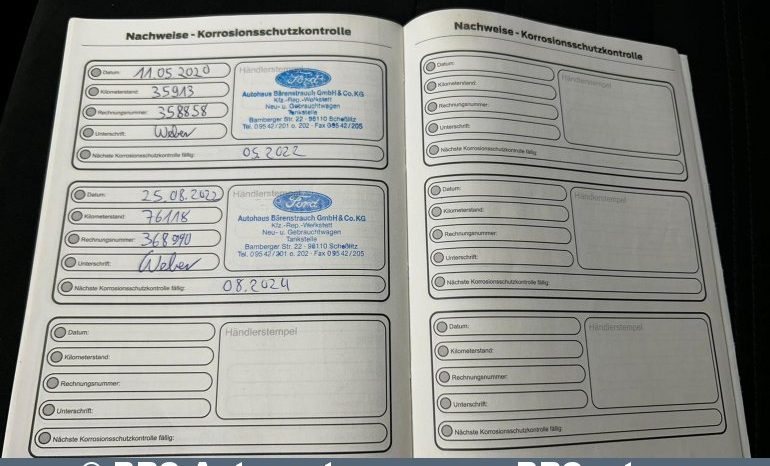 Nachweise - Korrosionsschutzkontrolle
Datum: 11.05.2020
Kilometerstand: 35913
Rechnungsnummer: 358858
Unterschrift: Weber
Händlerstempel
Ford
Autohaus Bärenstrauch GmbH & Co. KG
Kfz.-Rep.-Werkstatt
Neu- u. Gebrauchtwagen
Tankstelle
Bamberger Str. 22 - 96110 Scheßlitz
Tel. 09542/201 o. 202 · Fax 09542/205
Nächste Korrosionsschutzkontrolle fällig: 05.2022
Datum: 25.08.2022
Kilometerstand: 76118
Rechnungsnummer: 368990
Unterschrift: Weber
Händlerstempel
Ford
Autohaus Bärenstrauch GmbH & Co. KG
Kfz.-Rep.-Werkstatt
Neu- u. Gebrauchtwagen
Tankstelle
Bamberger Str. 22 - 96110 Scheßlitz
Tel. 09542/201 o. 202 · Fax 09542/205
Nächste Korrosionsschutzkontrolle fällig: 08.2024
Datum:
Kilometerstand:
Rechnungsnummer:
Unterschrift:
Händlerstempel
Nächste Korrosionsschutzkontrolle fällig:
Nachweise - Korrosionsschutzkontrolle
Datum:
Kilometerstand:
Rechnungsnummer:
Unterschrift:
Händlerstempel
Nächste Korrosionsschutzkontrolle fällig:
Datum:
Kilometerstand:
Rechnungsnummer:
Unterschrift:
Händlerstempel
Nächste Korrosionsschutzkontrolle fällig:
Datum:
Kilometerstand:
Rechnungsnummer:
Unterschrift:
Händlerstempel
Nächste Korrosionsschutzkontrolle fällig: